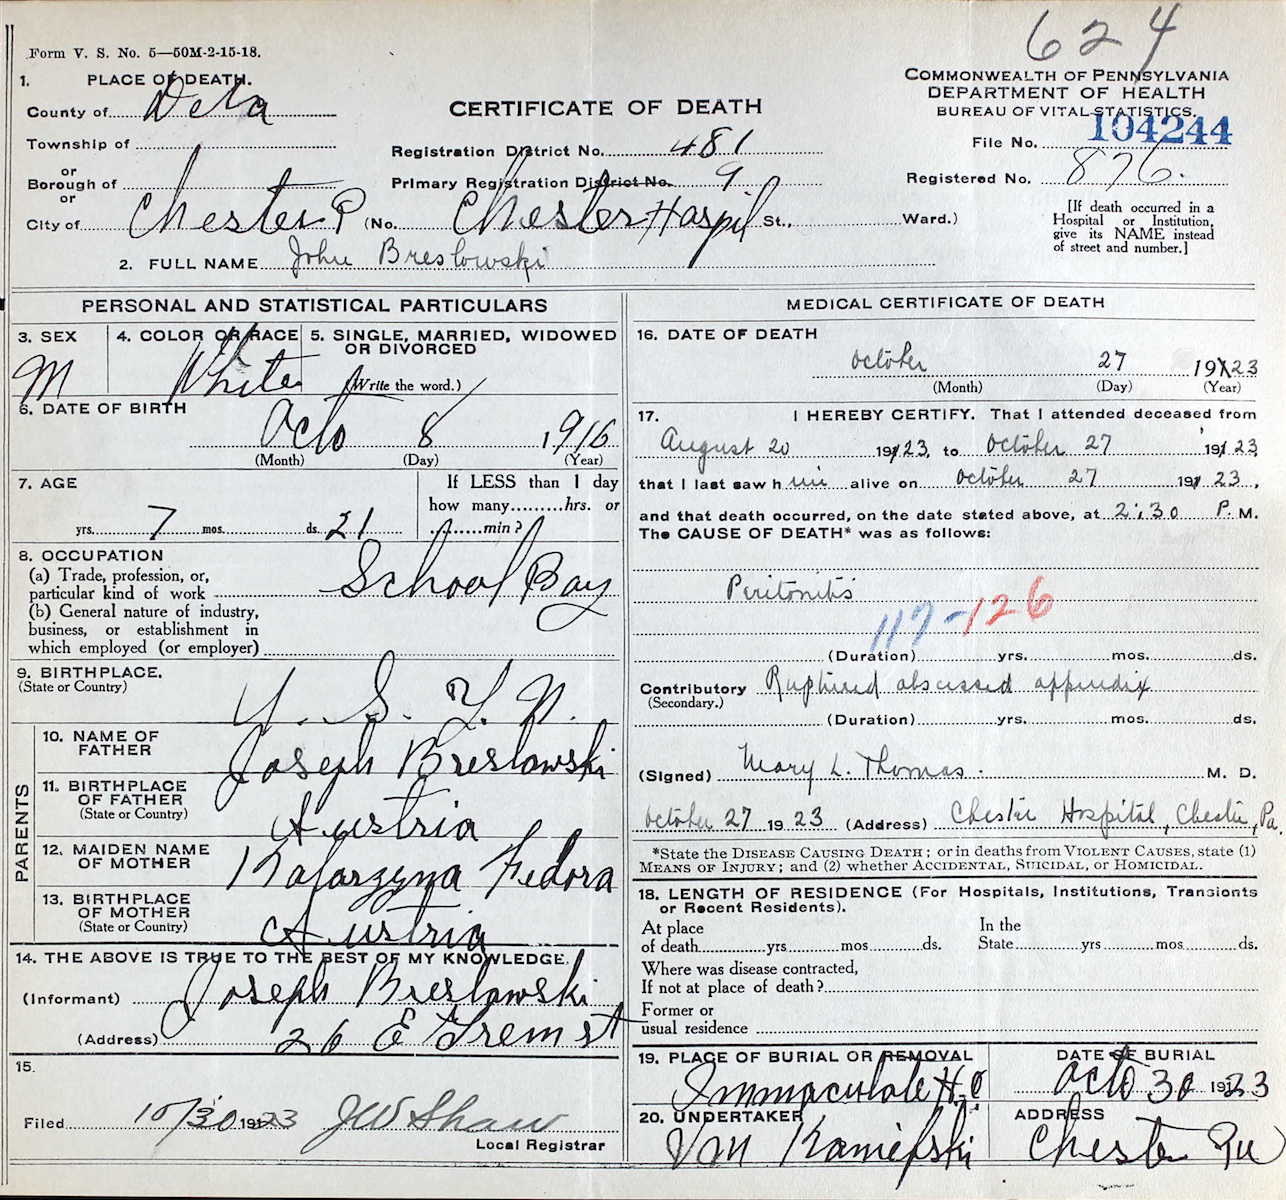 624
Form V. S. No. 5—50M-2-15-18.
COMMONWEALTH OF PENNSYLVANIA
DEPARTMENT OF HEALTH
BUREAU OF VITAL STATISTICS.
CERTIFICATE OF DEATH
1. PLACE OF DEATH.
County of Dela
Township of
or
Borough of
or
City of Chester P (No. Chester Haspil St., Ward.)
Registration District No. 481
Primary Registration District No. 9
File No. 104244
Registered No. 876.
[If death occurred in a
Hospital or Institution,
give its NAME instead
of street and number.]
2. FULL NAME John Breslowski
PERSONAL AND STATISTICAL PARTICULARS
3. SEX
M
4. COLOR OR RACE
White
5. SINGLE, MARRIED, WIDOWED
OR DIVORCED
(Write the word.)
6. DATE OF BIRTH
Octo 8 1916
(Month) (Day) (Year)
7. AGE
yrs. 7 mos. ds. 21
If LESS than 1 day
how many hrs. or
min?
8. OCCUPATION
(a) Trade, profession, or,
particular kind of work School Boy
(b) General nature of industry,
business, or establishment in
which employed (or employer)
9. BIRTHPLACE.
(State or Country)
PARENTS
10. NAME OF
FATHER Joseph Breslowski
11. BIRTHPLACE
OF FATHER
(State or Country) Austria
12. MAIDEN NAME
OF MOTHER Katarzyna Fedora
13. BIRTHPLACE
OF MOTHER
(State or Country) Austria
14. THE ABOVE IS TRUE TO THE BEST OF MY KNOWLEDGE.
(Informant) Joseph Breslawski
(Address) 26 E Trem st
15.
Filed 10/30 1923 JW Shaw
Local Registrar
MEDICAL CERTIFICATE OF DEATH
16. DATE OF DEATH
October 27 1923
(Month) (Day) (Year)
17. I HEREBY CERTIFY, That I attended deceased from
August 20 1923, to October 27 1923
that I last saw him alive on October 27 1923,
and that death occurred, on the date stated above, at 2:30 P. M.
The CAUSE OF DEATH* was as follows:
Peritonitis
117-126
(Duration) yrs. mos. ds.
Contributory Ruptured abscessed appendix
(Secondary.)
(Duration) yrs. mos. ds.
(Signed) Mary L. Thomas. M. D.
October 27 1923 (Address) Chester Hospital, Chester, Pa.
*State the DISEASE CAUSING DEATH; or in deaths from VIOLENT CAUSES, state (1)
MEANS OF INJURY; and (2) whether ACCIDENTAL, SUICIDAL, or HOMICIDAL.
18. LENGTH OF RESIDENCE (For Hospitals, Institutions, Transients
or Recent Residents).
At place
of death yrs mos ds.
In the
State yrs mos ds.
Where was disease contracted,
If not at place of death?
Former or
usual residence
19. PLACE OF BURIAL OR REMOVAL
Immaculate H.
DATE OF BURIAL
Octo 30 1923
20. UNDERTAKER
ADDRESS
Chester Pa